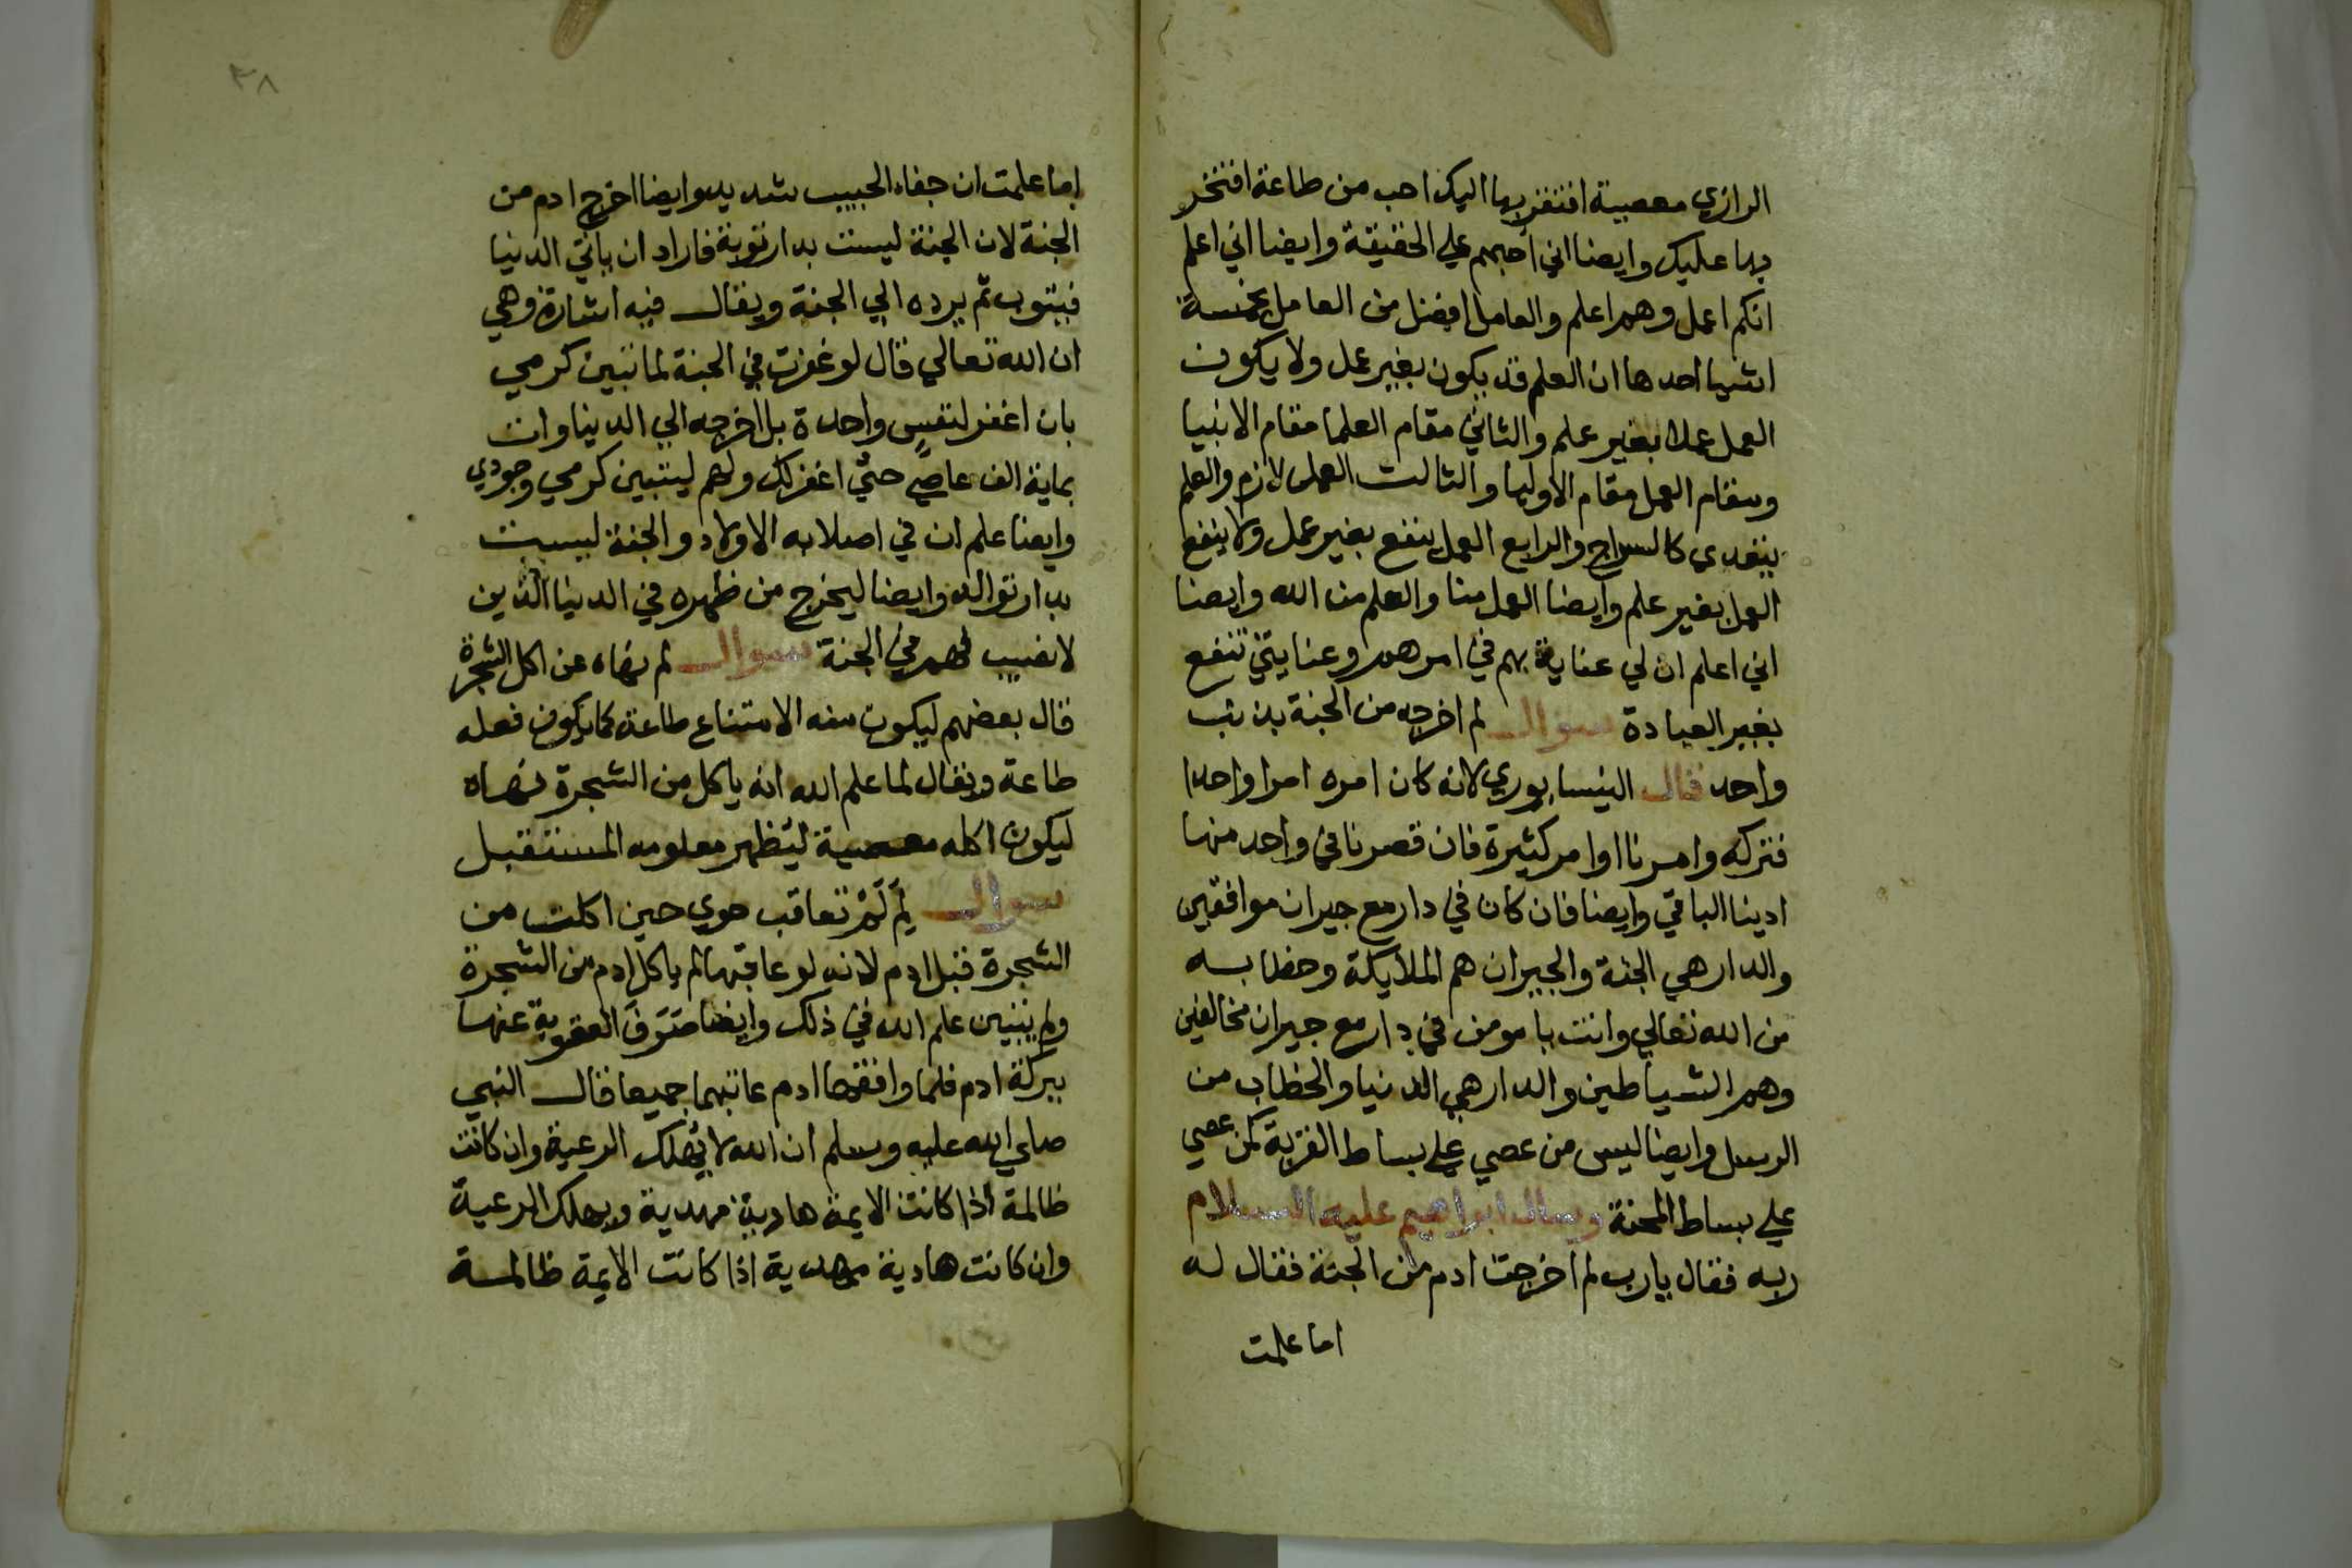 الرازي معصية افتقر بها اليك احب من طاعة افتخر
بها عليك وايضا اني احبهم علي الحقيقة وايضا اني اعلم
انكم اعمل وهم اعلم والعامل افضل من العامل بخمسة
اشيا احدها ان العلم قد يكون بغير عمل ولا يكون
العمل عملا بغير علم والثاني مقام العلما مقام الانبيا
ومقام العمل مقام الاوليا والثالث العمل لازم والعلم
يتعدي كالسراج والرابع العمل ينفع بغير عمل ولا ينفع
العمل بغير علم وايضا العمل منا والعلم من الله وايضا
اني اعلم ان لي عناية بهم في امرهم وعنايتي تنفع
بغير العبادة سوال لم اخرجه من الجنة بذنب
واحد قال النيسابوري لانه كان امره امرا واحدا
فتركه وامرنا اوامر كثيرة فان قصرنا في واحد منها
ادينا الباقي وايضا فان كان في دار مع جيران موافقين
والدار هي الجنة والجيران هم الملايكة وخطابه
من الله تعالي وانت يا مومن في دار مع جيران مخالفين
وهم الشياطين والدار هي الدنيا والخطاب من
الرسل وايضا ليس من عصي علي بساط القربة كمن عصي
علي بساط المحنة وسال ابراهيم عليه السلام
ربه فقال يارب لم اخرجت ادم من الجنة فقال له
اما علمت
٣٨
اما علمت ان جفاء الحبيب شديد وايضا اخرج ادم من
الجنة لان الجنة ليست بدار توبة فاراد ان ياتي الدنيا
فيتوب ثم يرده الي الجنة ويقال فيه اشارة وهي
ان الله تعالي قال لو غفرت في الجنة لما تبين كرمي
بان اغفر لنفس واحدة بل اخرجه الي الدنيا وات
بماية الف عاصي حتي اغفر لك ولهم ليتبين كرمي وجودي
وايضا علم ان في اصلابه الاولاد والجنة ليست
بدار توالد وايضا ليخرج من ظهره في الدنيا الذين
لا نصيب لهم في الجنة سوال لم نهاه عن اكل الشجرة
قال بعضهم ليكون منه الامتناع طاعة كما يكون فعله
طاعة ويقال لما علم الله انه ياكل من الشجرة نهاه
ليكون اكله معصية ليظهر معلومه المستقبل
سوال لِم لَمْ تعاقب حوي حين اكلت من
الشجرة قبل ادم لانه لو عاقبها لم ياكل ادم من الشجرة
ولم يتبين علم الله في ذلك وايضا صَرَفَ العقوبة عنها
ببركة ادم فلما وافقها ادم عاتبهما جميعا قال النبي
صلي الله عليه وسلم ان الله لا يهلك الرعية وان كانت
ظالمة اذا كانت الايمة هادية مهدية ويهلك الرعية
وان كانت هادية مهدية اذا كانت الايمة ظالمة